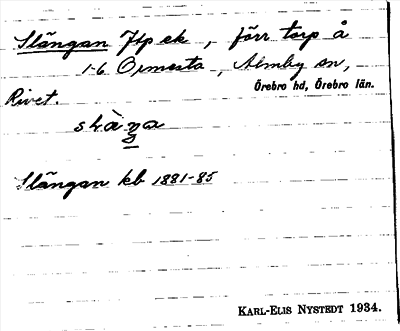 Slängan Jtp ek, förr torp å
1-6 Ormesta, Almby sn,
Örebro hd, Örebro län.
Rivet.
slàŋa
Slängan kb 1881-85
KARL-ELIS NYSTEDT 1934.